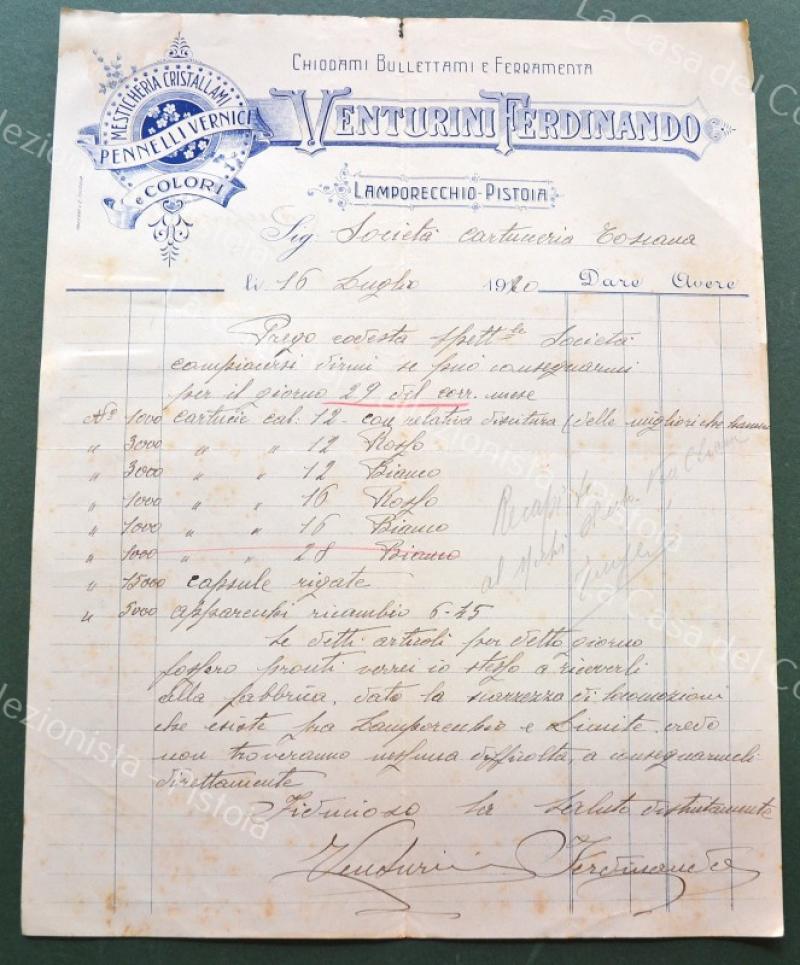 CHIODAMI BULLETTAMI E FERRAMENTA
VENTURINI FERDINANDO
MESTICHERIA CRISTALLAMI
PENNELLI VERNICI
E COLORI
LAMPORECCHIO-PISTOIA
Sig. Società Cartucceria Toscana
li 16 Luglio 1920 Dare Avere
Prego codesta Spett.le Società
compiacersi dirmi se può consegnarmi
per il giorno 29 del corr. mese
N° 1000 cartucce cal: 12 - con relativa (delle migliori che
" 3000 " " 12 Rosso
" 3000 " " 12 Bianco
" 1000 " " 16 Rosso
" 1000 " " 16 Bianco
" 1000 " " 28 Bianco
" 15000 capsule rigate
" 5000 apparecchi ricambio 6.45
Se detti articoli per detto giorno
fossero pronti verrei io stesso a riceverli
alla fabbrica, dato la di locomozioni
che esiste fra Lamporecchio e Limite credo
non troveranno nessuna difficoltà, a consegnarmeli
direttamente
Fiducioso La saluto distintamente
Venturini Ferdinando
La Casa del Collezionista - Pistoia